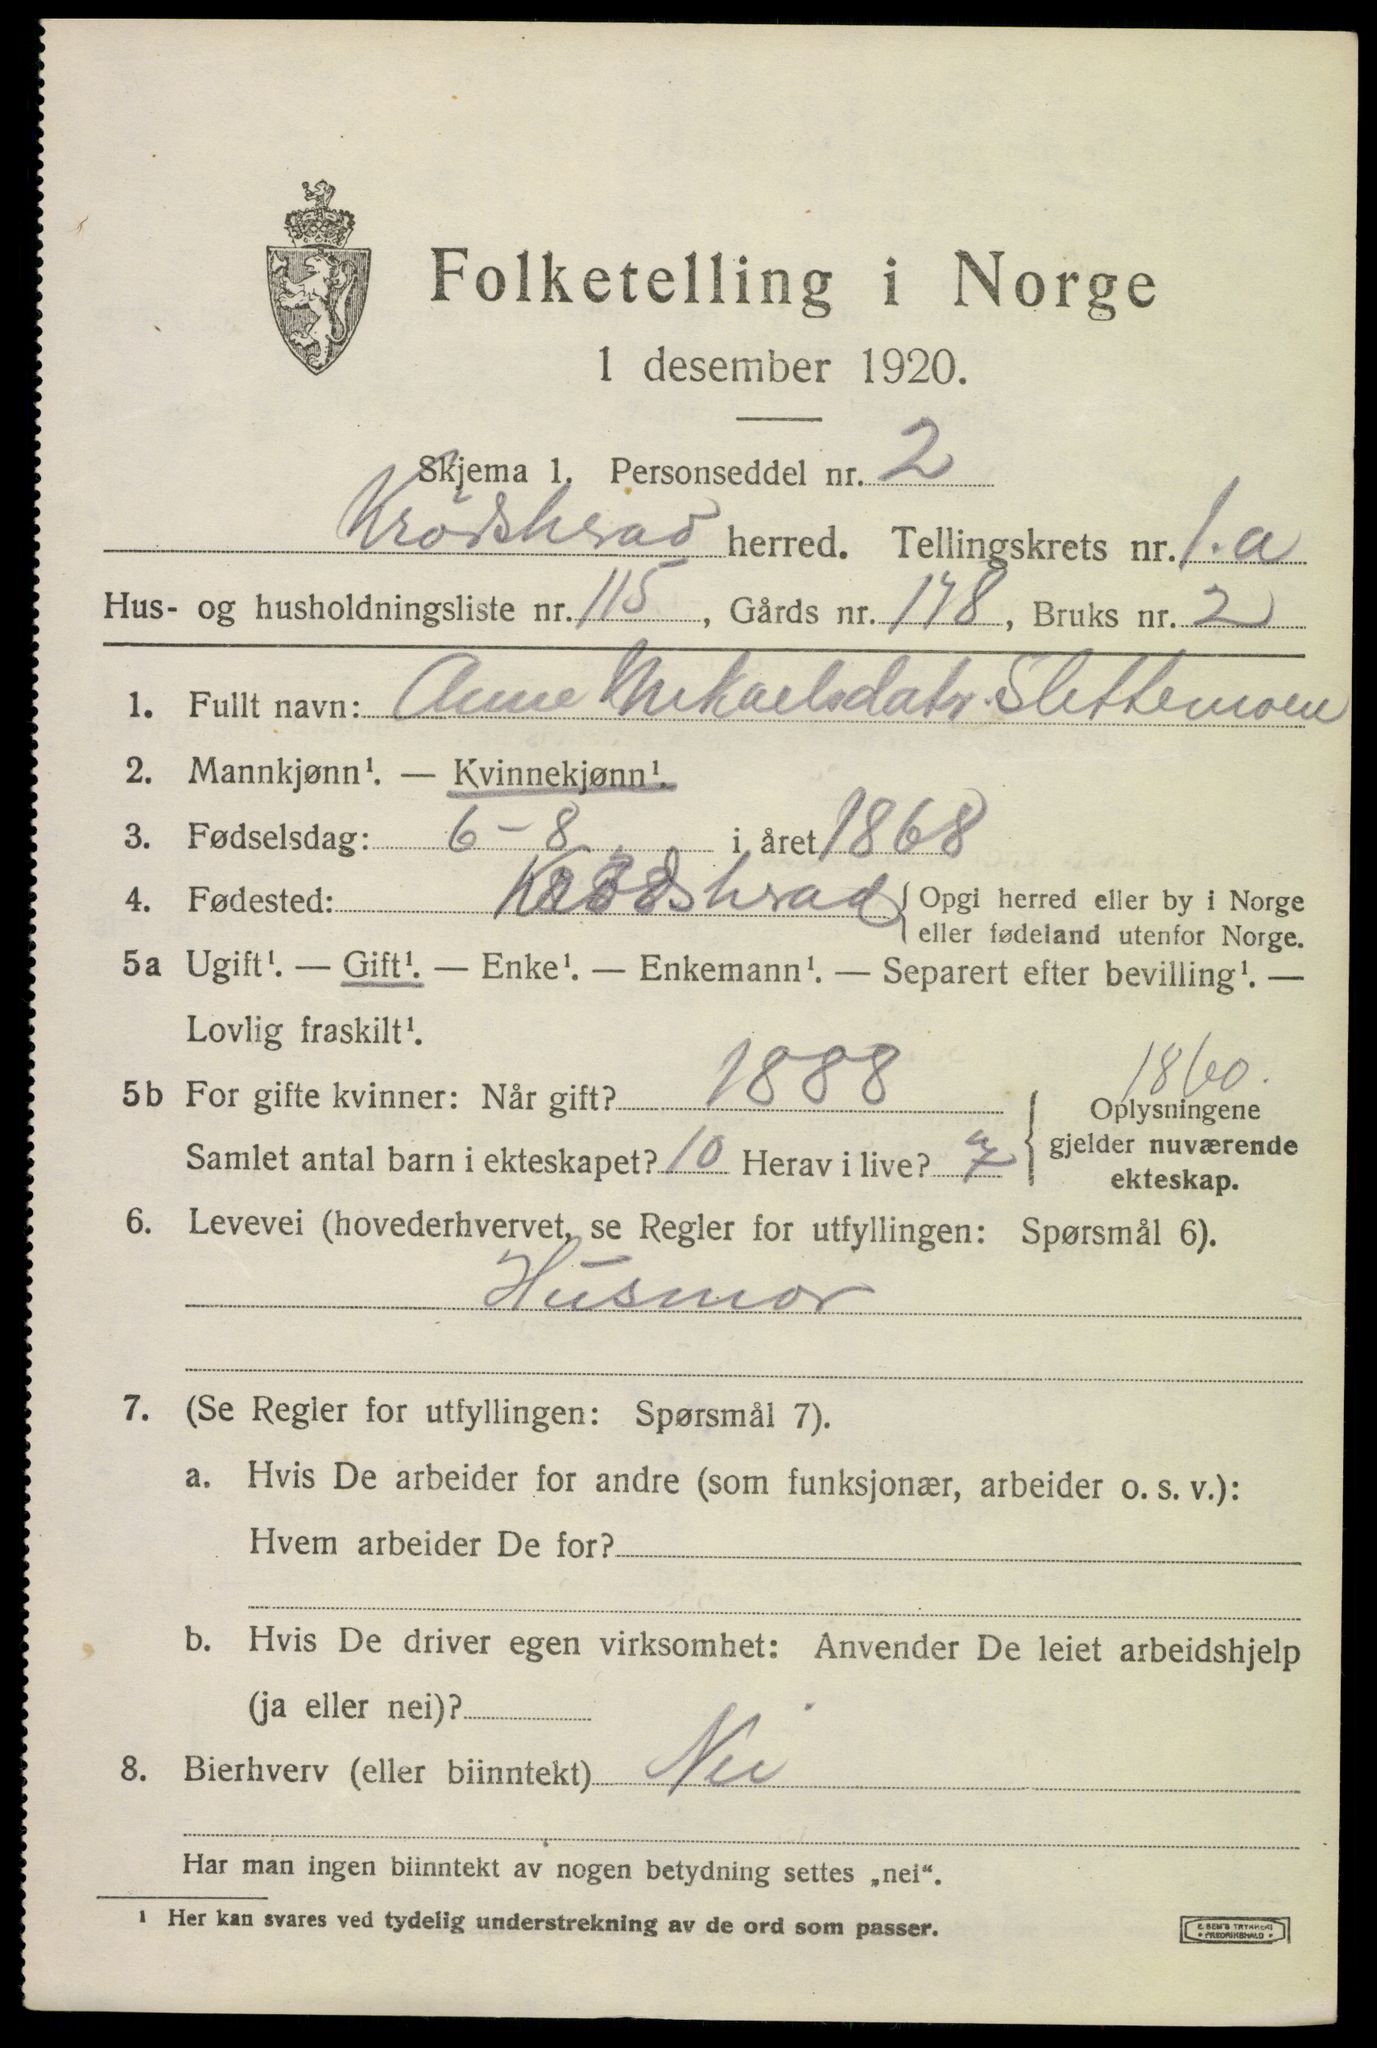 Folketelling i Norge
1 desember 1920.
Skjema 1. Personseddel nr. 2
Krödsherad herred. Tellingskrets nr. 1.a
Hus- og husholdningsliste nr. 115, Gårds nr. 178, Bruks nr. 2
1. Fullt navn: Anne Mikaelsdatr. Slettemoen
2. Mannkjønn¹. — Kvinnekjønn¹.
3. Fødselsdag: 6-8 i året 1868
4. Fødested: Krödsherad { Opgi herred eller by i Norge
eller fødeland utenfor Norge.
5a Ugift¹. — Gift¹. — Enke¹. — Enkemann¹. — Separert efter bevilling¹. —
Lovlig fraskilt¹.
1860.
5b For gifte kvinner: Når gift? 1888 { Oplysningene
gjelder nuværende
ekteskap.
Samlet antal barn i ekteskapet? 10 Herav i live?
6. Levevei (hovederhvervet, se Regler for utfyllingen: Spørsmål 6).
Husmor
7. (Se Regler for utfyllingen: Spørsmål 7).
a. Hvis De arbeider for andre (som funksjonær, arbeider o. s. v.):
Hvem arbeider De for?
b. Hvis De driver egen virksomhet: Anvender De leiet arbeidshjelp
(ja eller nei)?
8. Bierhverv (eller biinntekt) Nei
Har man ingen biinntekt av nogen betydning settes „nei“.
¹ Her kan svares ved tydelig understrekning av de ord som passer.
E. SEM'S TRYKKERI
• FREDRIKSHALD •